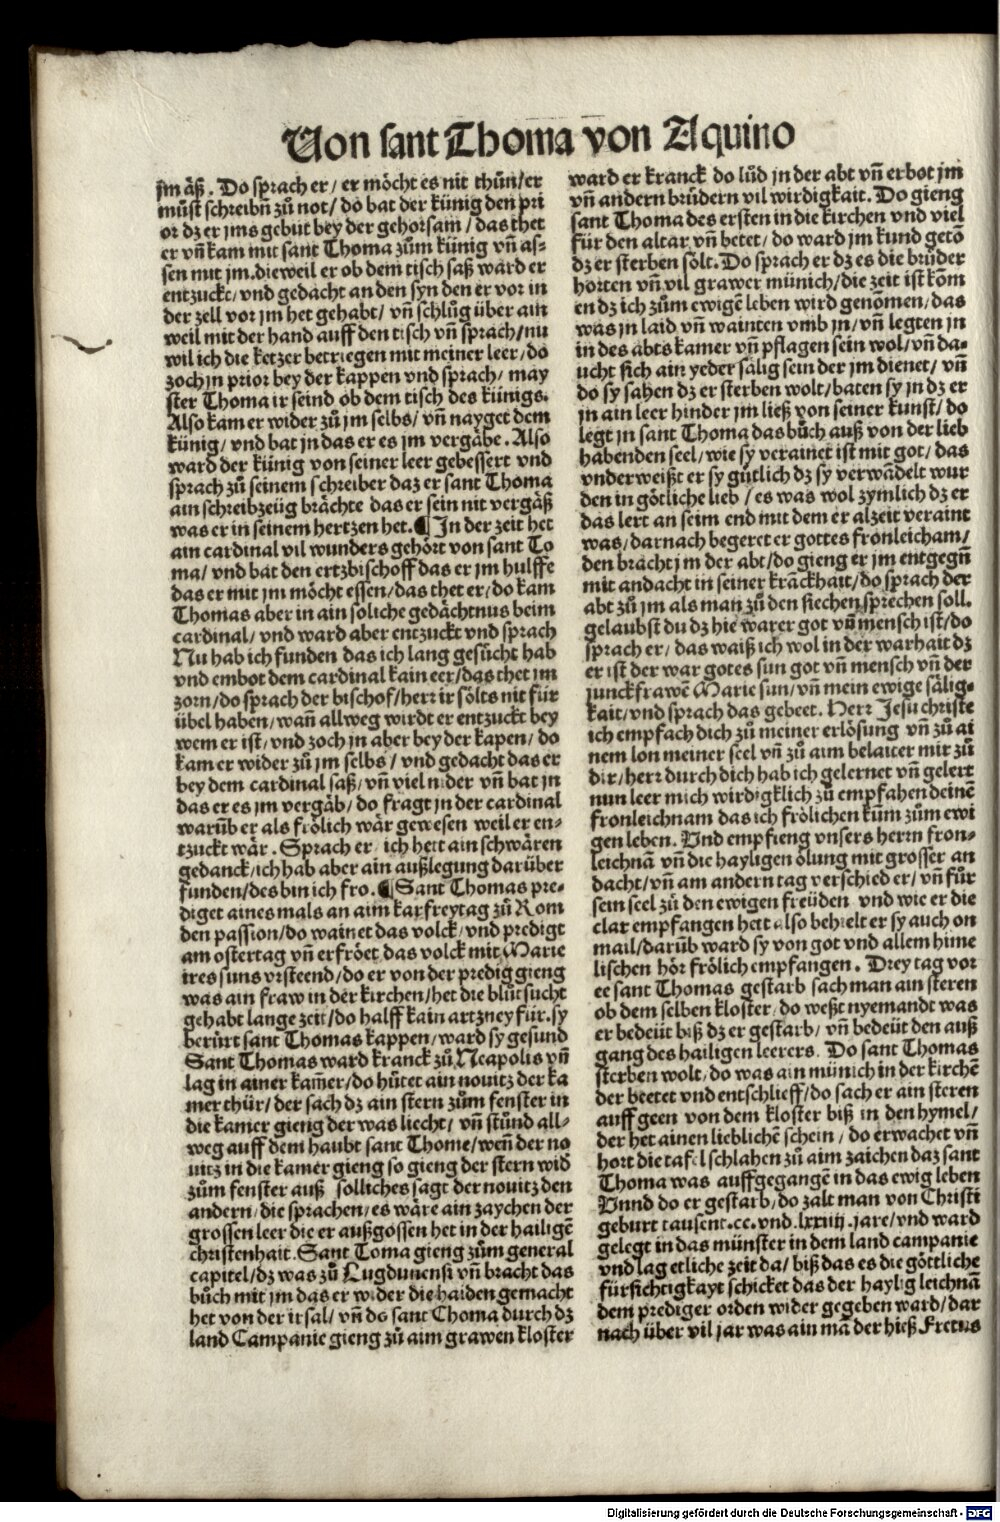 Von sant Thoma von Aquino
jm äß. Do sprach er/ er möcht es nit thůn/er
můst schreibñ zů not/ do bat der künig den pri
or dz er jms gebüt bey der gehorsam/ das thet
er vñ kam mit sant Thoma zům künig vñ as-
sen mit jm. dieweil er ob dem tisch saß ward er
entzuckt/ vnd gedacht an den syn den er vor in
der zell vor jm het gehabt/ vñ schlůg über ain
weil mit der hand auff den tisch vñ sprach/ nu
wil ich die ketzer betriegen mit meiner leer/ do
zoch jn prior bey der kappen vnd sprach/ may
ster Thoma ir seind ob dem tisch des künigs.
Also kam er wider zů jm selbs/ vñ nayget dem
künig/ vnd bat jn das er es jm vergäbe. Also
ward der künig von seiner leer gebessert vnd
sprach zů seinem schreiber daz er sant Thoma
ain schreibzeüg brächte das er sein nit vergäß
was er in seinem hertzen het. ¶ In der zeit het
ain cardinal vil wunders gehört von sant To
ma/ vnd bat den ertzbischoff das er jm hulffe
das er mit jm möcht essen/ das thet er/ do kam
Thomas aber in ain soliche gedächtnus beim
cardinal/ vnd ward aber entzuckt vnd sprach
Nu hab ich funden das ich lang gesůcht hab
vnd embot dem cardinal kain eer/ das thet jm
zorn/ do sprach der bischof/ herr ir sölts nit für
übel haben/ wañ allweg wirdt er entzuckt bey
wem er ist/ vnd zoch jn aber bey der kapen/ do
kam er wider zů jm selbs/ vnd gedacht das er
bey dem cardinal saß/ vñ viel nider vñ bat jn
das er es jm vergäb/ do fragt jn der cardinal
warũb er als frölich wär gewesen weil er en-
tzuckt wär. Sprach er/ ich hett ain schwären
gedanck/ ich hab aber ain außlegung darüber
funden/ des bin ich fro. ¶ Sant Thomas pre-
diget aines mals an aim karfreytag zů Rom
den passion/ do wainet das volck/ vnd predigt
am ostertag vñ erfröet das volck mit Marie
ires suns vrsteend/ do er von der predig gieng
was ain fraw in der kirchen/ het die blůtsucht
gehabt lange zeit/ do halff kain artzney für. sy
berürt sant Thomas kappen/ ward sy gesund
Sant Thomas ward kranck zů Neapolis vñ
lag in ainer kam̃er/ do hůtet ain novitz der ka
mer thür/ der sach dz ain stern zům fenster in
die kamer gieng der was liecht/ vñ stůnd all-
weg auff dem haubt sant Thome/ weñ der no
uitz in die kamer gieng so gieng der stern wid̃
zům fenster auß solliches sagt der nouitz den
andern/ die sprachen/ es wäre ain zaychen der
grossen leer die er außgossen het in der hailigẽ
christenhait. Sant Toma gieng zům general
capitel/ dz was zů Lugdunensi vñ bracht das
bůch mit jm das er wider die haiden gemacht
het von der irsal/ vñ do sant Thoma durch dz
land Campanie gieng zů aim grawen kloster
ward er kranck do lůd jn der abt vñ erbot jm
vñ andern brüdern vil wirdigkait. Do gieng
sant Thoma des ersten in die kirchen vnd viel
für den altar vñ betet/ do ward jm kund getõ
dz er sterben solt. Do sprach er dz es die brüder
horten vñ vil grawer münich/ die zeit ist kõm
en dz ich zům ewigẽ leben wird genomen/ das
was jn laid vñ wainten vmb jn/ vñ legten jn
in des abts kamer vñ pflagen sein wol/ vñ da-
ucht sich ain yeder sälig sein der jm dienet/ vñ
do sy sahen dz er sterben wolt/ baten sy jn dz er
jn ain leer hinder jm ließ von seiner kunst/ do
legt jn sant Thoma das bůch auß von der lieb
habenden seel/ wie sy verainet ist mit got/ das
vnderweißt er sy gütlich dz sy verwãdelt wur
den in götliche lieb/ es was wol zymlich dz er
das lert an seim end mit dem er alzeit veraint
was/ darnach begeret er gottes fronleicham/
den bracht jm der abt/ do gieng er jm entgegñ
mit andacht in seiner krãckhait/ do sprach der
abt zů jm als man zů den siechen sprechen soll.
gelaubst du dz hie warer got vñ mensch ist/ do
sprach er/ das waiß ich wol in der warhait dz
er ist der war gotes sun got vñ mensch vñ der
junckfrawẽ Marie sun/ vñ mein ewige sälig-
kait/ vnd sprach das gebeet. Herr Jesu christe
ich empfach dich zů meiner erlösung vñ zů ai
nem lon meiner seel vñ zů aim belaiter mir zů
dir/ herr durch dich hab ich gelernet vñ gelert
nun leer mich wirdigklich zů empfahen deinẽ
fronleichnam das ich frölichen kum̃ zům ewi
gen leben. Vnd empfieng vnsers herrn fron-
leichnã vñ die hayligen ölung mit grosser an
dacht/ vñ am andern tag verschied er/ vñ für
sein seel zů den ewigen freüden vnd wie er die
clar empfangen hett also behielt er sy auch on
mail/ darũb ward sy von got vnd allem hime
lischen hör frölich empfangen. Drey tag vor
ee sant Thomas gestarb sach man ain steren
ob dem selben kloster/ do weßt nyemandt was
er bedeüt biß dz er gestarb/ vñ bedeüt den auß
gang des hailigen leerers. Do sant Thomas
sterben wolt/ do was ain münich in der kirchẽ
der beetet vnd entschlieff/ do sach er ain steren
auff geen von dem kloster biß in den hymel/
der het ainen lieblichẽ schein/ do erwachet vñ
hort die tafel schlahen zů aim zaichen daz sant
Thoma was auffgegangẽ in das ewig leben
Vnnd do er gestarb/ do zalt man von Christi
geburt tausent.cc.vnd.lxxiiij.jare/ vnd ward
gelegt in das münster in dem land campanie
vnd lag etliche zeit da/ biß das es die göttliche
fürsichtigkayt schicket das der haylig leichnã
dem prediger orden wider gegeben ward/ dar
nach über vil jar was ain mã der hieß Fretus
Digitalisierung gefördert durch die Deutsche Forschungsgemeinschaft - DFG